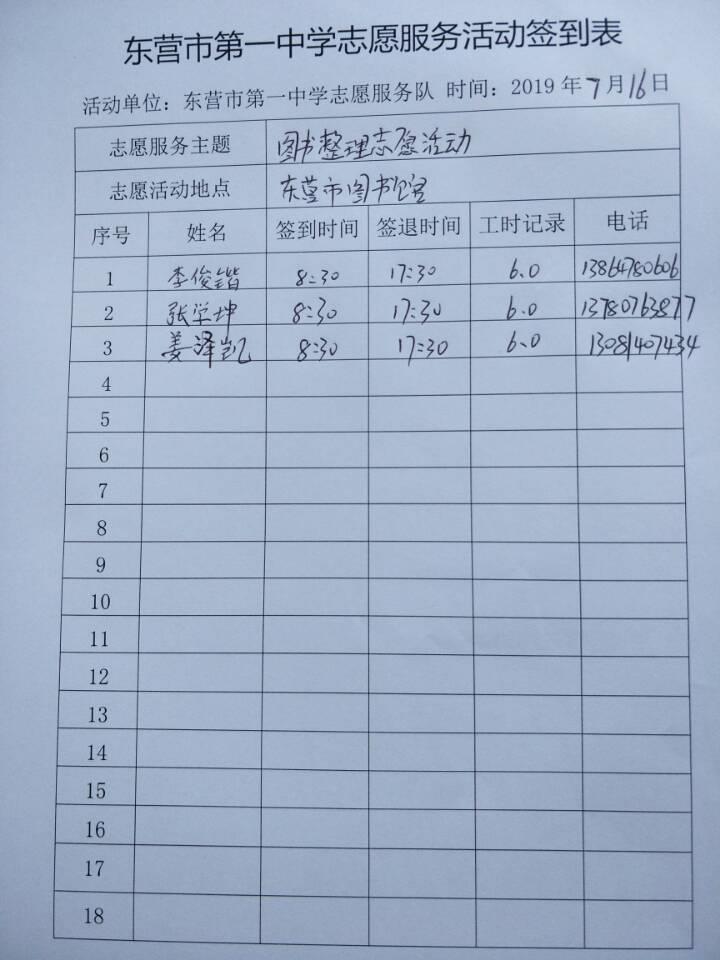 东营市第一中学志愿服务活动签到表
活动单位：东营市第一中学志愿服务队 时间：2019年7月16日
志愿服务主题 图书整理志愿活动
志愿活动地点 东营市图书馆
序号 姓名 签到时间 签退时间 工时记录 电话
1 李俊锴 8:30 17:30 6.0 13864780606
2 张学坤 8:30 17:30 6.0 13780763877
3 姜泽凯 8:30 17:30 6.0 13081407434
4
5
6
7
8
9
10
11
12
13
14
15
16
17
18